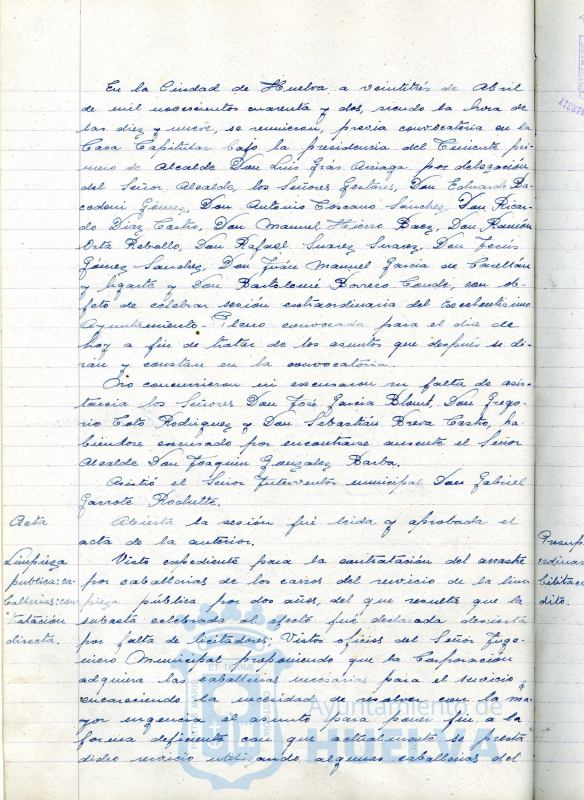 En la Ciudad de Huelva, a veintitrés de Abril
de mil novecientos cuarenta y dos, siendo la hora de
las diez y nueve, se reunieron, previa convocatoria en la
Casa Capitular bajo la presidencia del Teniente pri-
mero de Alcalde Don Luis Grás Arriaga por delegación
del Señor Alcalde, los Señores Gestores, Don Eduardo Ba-
cedoni Gómez, Don Antonio Toscano Sánchez, Don Ricar-
do Díaz Castro, Don Manuel Hierro Baez, Don Ramón
Orta Rebollo, Don Rafael Suarez Suarez, Don Jesús
Gómez Sanchez, Don Juan Manuel García de
y Ugarte y Don Bartolomé Borrero Conde, con ob-
jeto de celebrar sesión extraordinaria del Excelentísimo
Ayuntamiento-Pleno convocada para el dia de
hoy a fin de tratar de los asuntos que después se di-
rán y constan en la convocatoria.
No concurrieron ni excusaron su falta de asis-
tencia los Señores Don José Garcia Don Grego-
rio Toto Rodriguez y Don Sebastián Castro, ha-
biéndose excusado por encontrarse ausente el Señor
Alcalde Don Joaquin Gonzalez Barba.
Asistió el Señor Interventor municipal Don Gabriel
Garrote
Acta
Abierta la sesión fué leida y aprobada el
acta de la anterior.
Limpieza
publica: ca-
ballerias: con-
tratación
directa.
Visto expediente para la contratación del arrastre
por caballerias de los carros del servicio de la lim-
pieza pública por dos años, del que resulta que la
subasta celebrada al efecto fué declarada desierta
por falta de licitadores; Vistos oficios del Señor Inge-
niero Municipal proponiendo que la Corporación
adquiera las caballerias necesarias para el servicio y
encareciendo la necesidad de resolver con la ma-
yor urgencia el asunto para poner fin a la
forma deficiente con que actualmente se presta
dicho servicio utilizando algunas caballerias del
Presup
ordinar
bilitaci
dito.
Ayuntamiento de
HUELVA